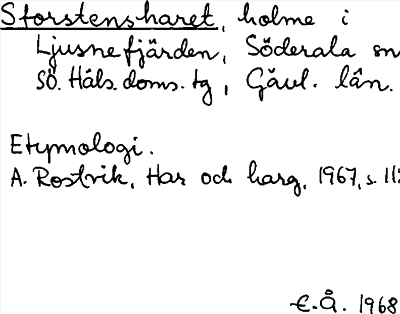 Storstensharet, holme i
Ljusnefjärden, Söderala sn
SÖ. Häls. doms. tg, Gävl. län.
Etymologi.
A. Rostvik, Har och harg, 1967, s. 11
E.Å. 1968